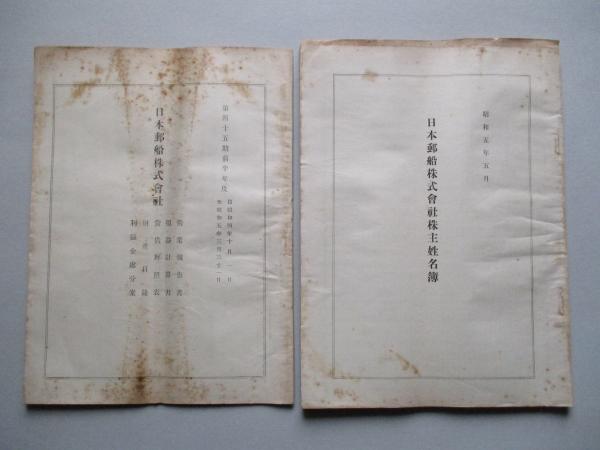 第四十五期前半年度
自昭和四年十月一日
至昭和五年三月三十一日
日本郵船株式會社
營業報告書
損益計算書
貸借對照表
財產目錄
利益金處分案
昭和五年五月
日本郵船株式會社株主姓名簿